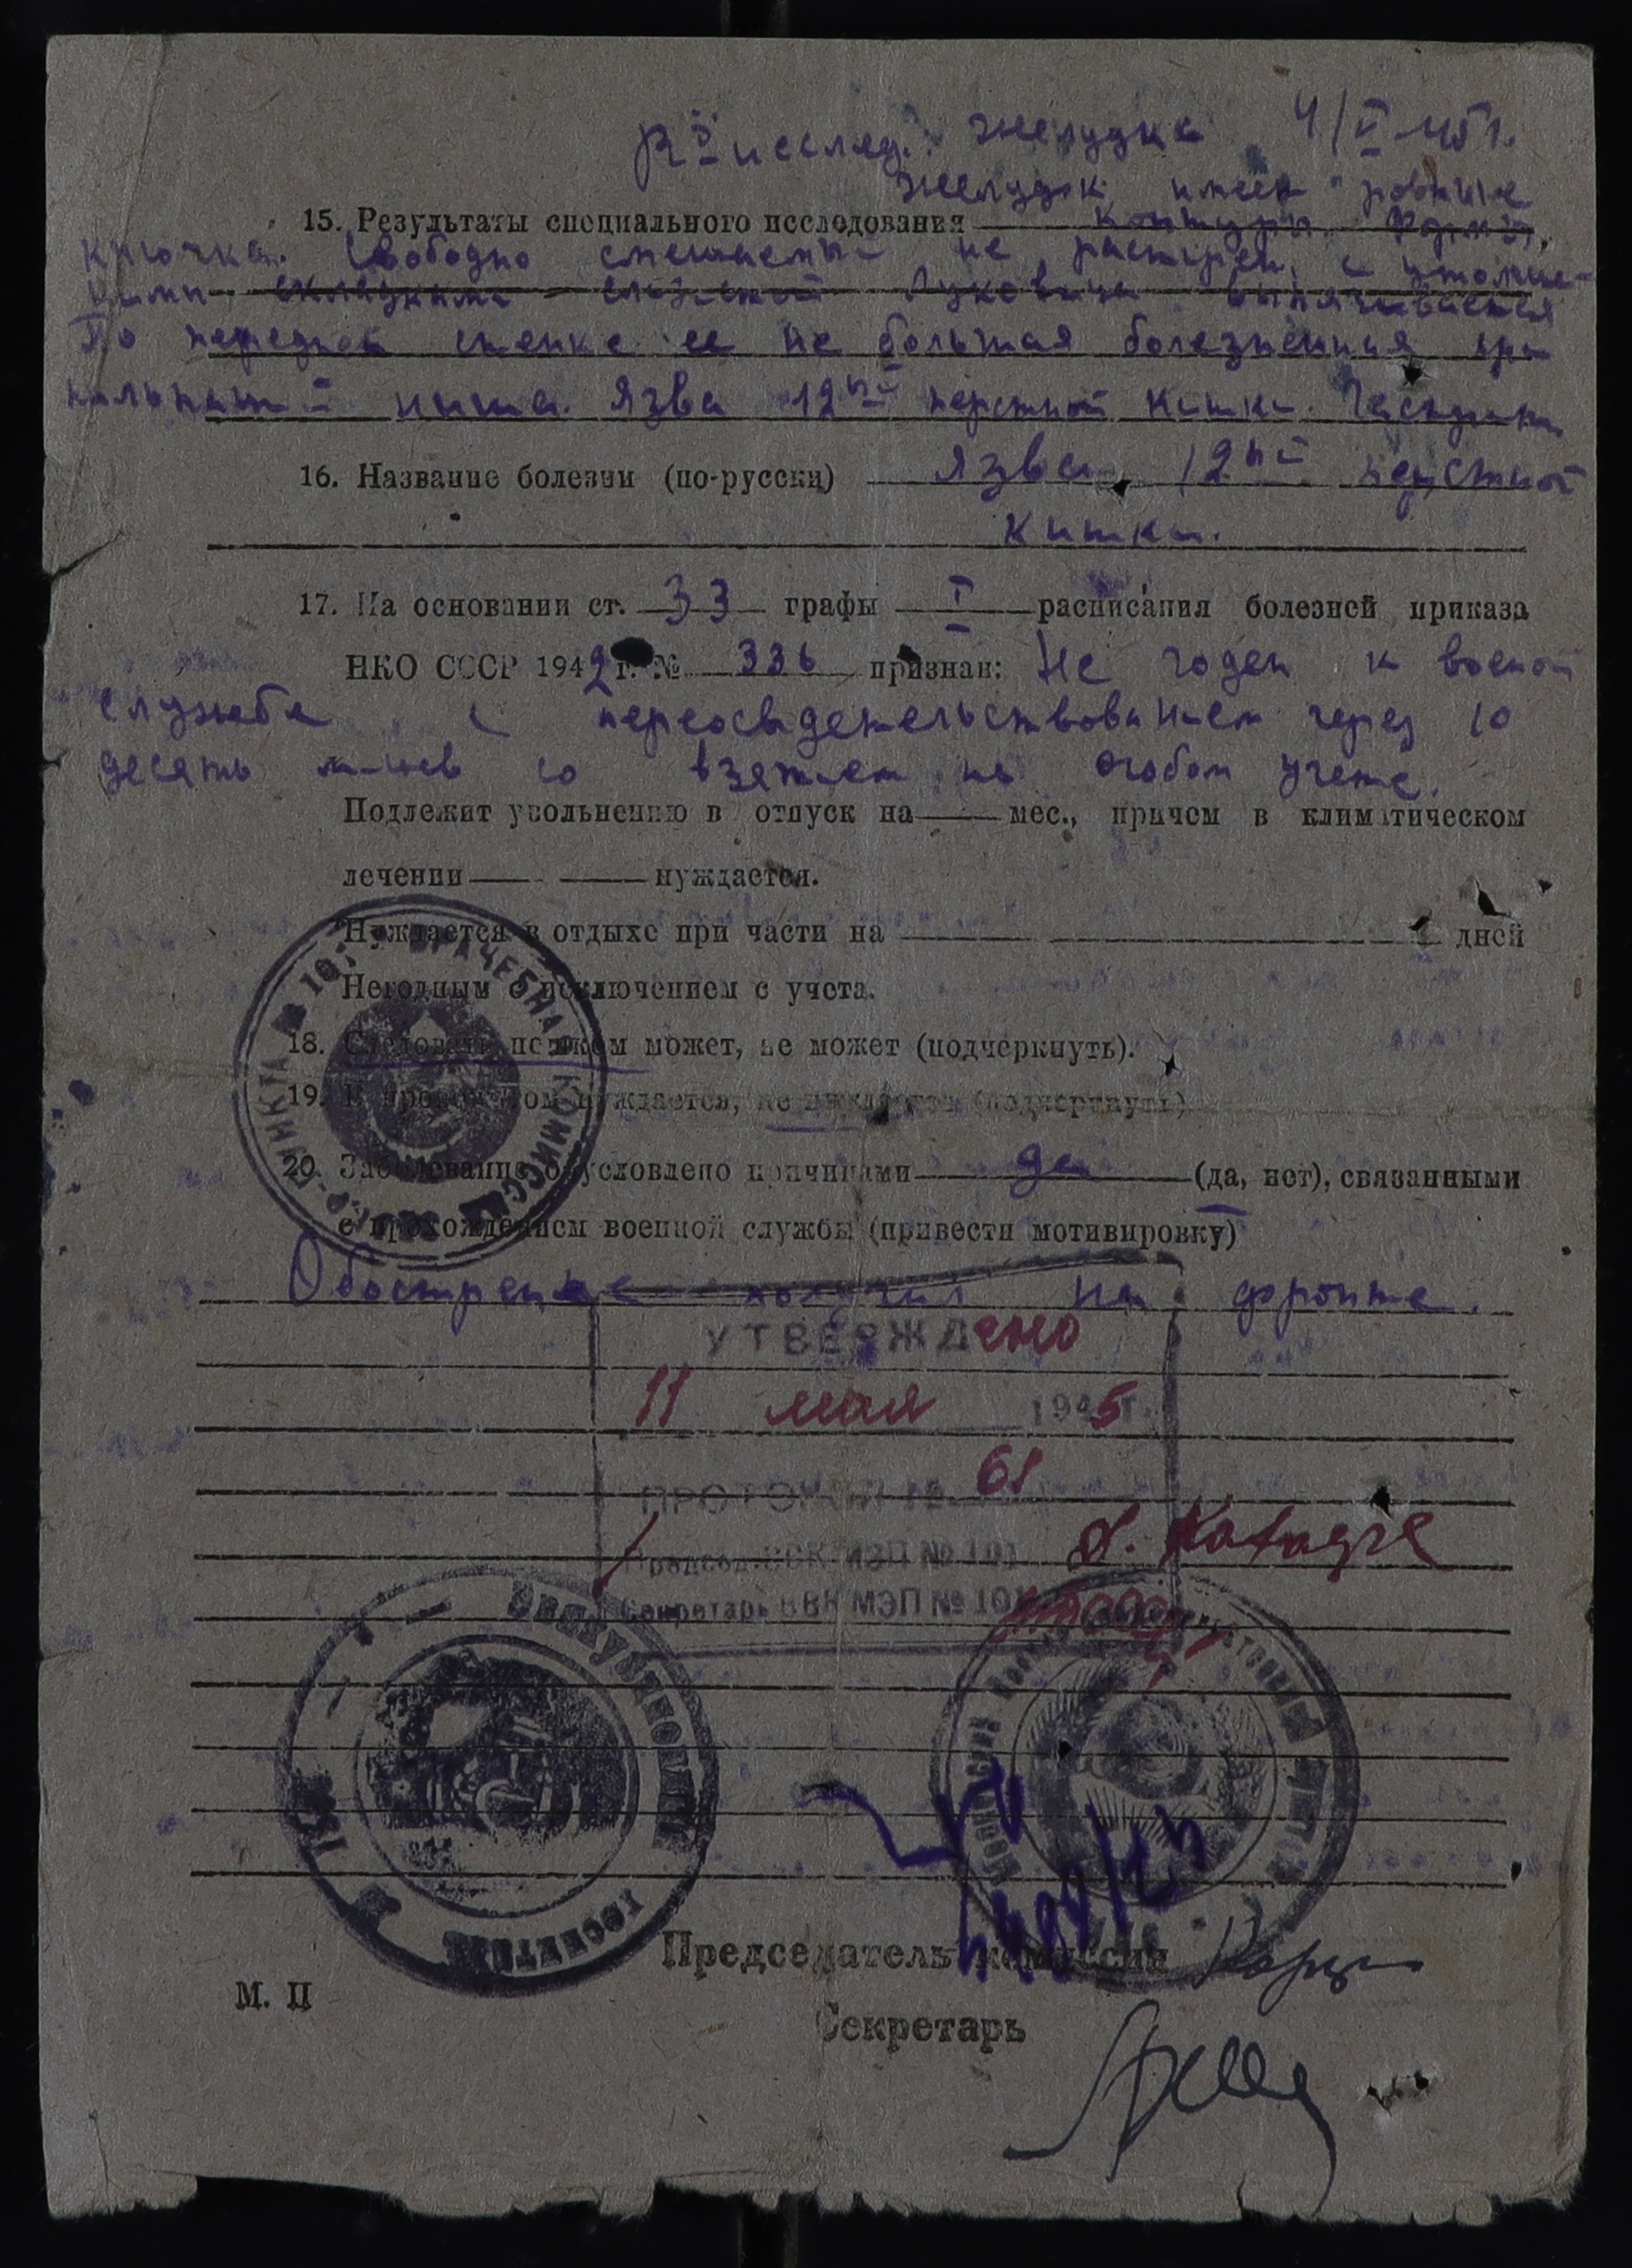 Rо исслед. желудка 4/V 45 г.
Желудок имеет ровные
15. Результаты специального исследования контуры. Форма
крючка. Свободно смещаемый не расширен, с утолщен-
ными складками слизистой Луковица выпячивается
По передней стенке ее не большая болезненная
ниша. Язва 12ной перстной кишки.
16. Название болезни (по-русски) Язва 12ной перстной
кишки.
17. На основании ст. 33 графы I расписания болезней приказа
НКО СССР 1942 г. № 336 признан: Не годен к военой
службе с переосвидетельствованием через 10
десять м-цев со взятием на особом учете.
Подлежит увольнению в отпуск на — мес., причем в климатическом
лечении — — нуждается.
Нуждается в отдыхе при части на дней
Негодным с исключением с учета.
18. Следовать пешком может, не может (подчеркнуть).
19. В провожатом нуждается, не нуждается (подчеркнуть)
20. Заболевание обусловлено причинами да (да, нет), связанными
с прохождением военной службы (привести мотивировку)
Обострение получил на фронте.
УТВЕРЖДено
11 мая 1945 г.
ПРОТОКОЛ № 61
Председ. ВВК МЭП № 101
Секретарь ВВК МЭП № 101
ВРАЧЕБНАЯ КОМИССИЯ
Эвакуационный
госпиталь
Председатель комиссии
М. П
Секретарь